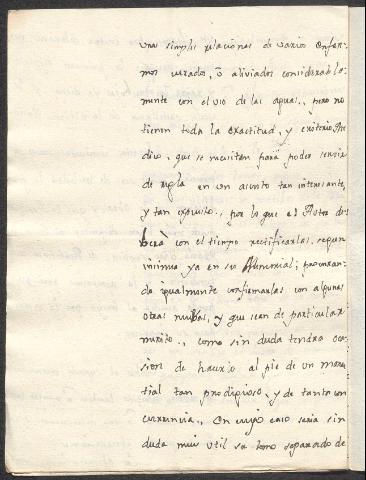 unas simples relaciones de varios enfer-
mos curados, ò aliviados considerable-
mente con el uso de las aguas, pero no
tienen toda la exactitud, y criterio Me-
dico, que se necesitan para poder servir
de regla en un asunto tan interesante,
y tan expuesto, por lo que el Autor de-
berà con el tiempo rectificarlas, segun
insinua ya en su Memorial; procuran-
do igualmente confirmarlas con algunas
otras nuebas, y que sean de particular
merito, como sin duda tendra oca-
sion de hacerlo al pie de un manan-
tial tan prodigioso, y de tanta con-
currencia, En cuyo caso seria sin
duda mui util su tomo separado de